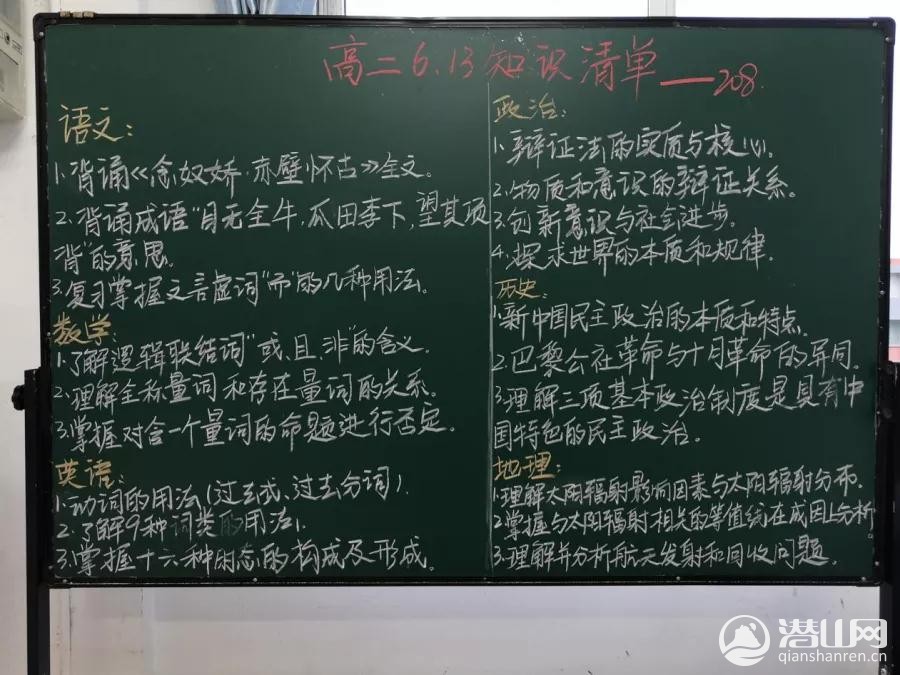 高二6.13知识清单——208.
语文:
1.背诵《念奴娇·赤壁怀古》全文.
2.背诵成语"目无全牛,瓜田李下,望其项
背"的意思.
3.复习掌握文言虚词"而"的几种用法.
数学:
1.了解逻辑联结词"或、且、非"的含义.
2.理解全称量词和存在量词的关系.
3.掌握对含一个量词的命题进行否定.
英语:
1.动词的用法(过去式、过去分词).
2.了解9种词类的用法.
3.掌握十六种时态的构成及形成.
政治:
1.辩证法的实质与核心.
2.物质和意识的辩证关系.
3.创新意识与社会进步.
4.探求世界的本质和规律.
历史:
1.新中国民主政治的本质和特点.
2.巴黎公社革命与十月革命的异同.
3.理解三项基本政治制度是具有中
国特色的民主政治.
地理:
1.理解太阳辐射影响因素与太阳辐射分布.
2.掌握与太阳辐射相关的等值线在成因上分析
3.理解并分析航天发射和回收问题.
潜山网
qianshanren.cn